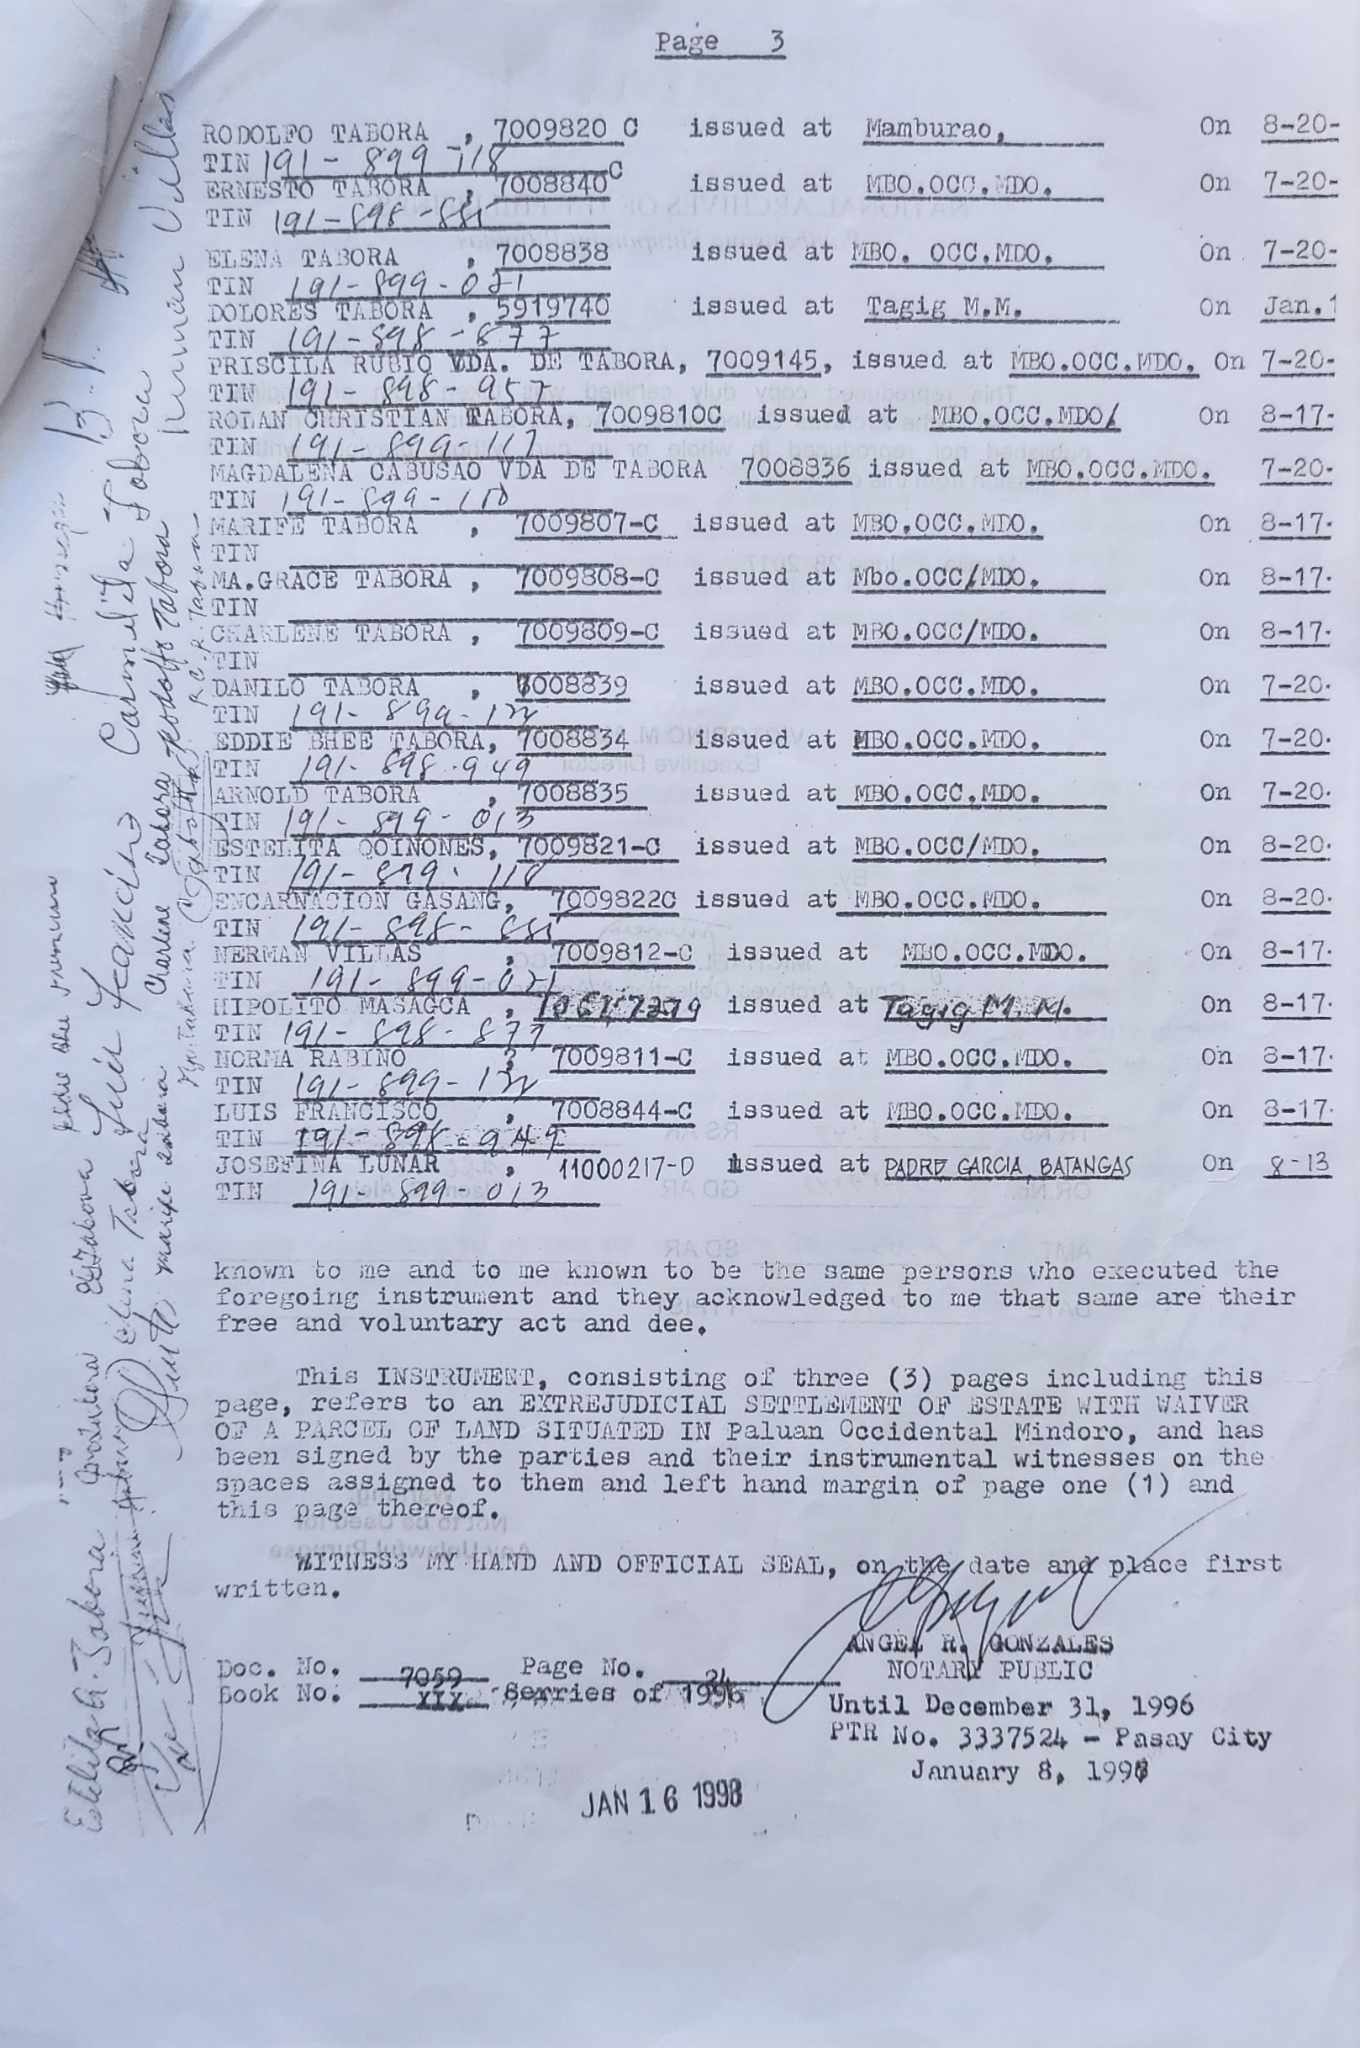 Page 3
RODOLFO TABORA , 7009820 C issued at Mamburao, On 8-20-
TIN 191-899-118
ERNESTO TABORA , 7008840C issued at MBO.OCC.MDO. On 7-20-
TIN 191-898-881
ELENA TABORA , 7008838 issued at MBO. OCC.MDO. On 7-20-
TIN 191-899-021
DOLORES TABORA , 5919740 issued at Tagig M.M. On Jan.1
TIN 191-898-877
PRISCILA RUBIO VDA. DE TABORA, 7009145, issued at MBO.OCC.MDO. On 7-20-
TIN 191-898-957
ROLAN CHRISTIAN TABORA, 7009810C issued at MBO.OCC.MDO/ On 8-17-
TIN 191-899-117
MAGDALENA CABUSAO VDA DE TABORA 7008836 issued at MBO.OCC.MDO. 7-20-
TIN 191-899-110
MARIFE TABORA , 7009807-C issued at MBO.OCC.MDO. On 8-17-
TIN
MA.GRACE TABORA , 7009808-C issued at Mbo.OCC/MDO. On 8-17-
TIN
CHARLENE TABORA , 7009809-C issued at MBO.OCC/MDO. On 8-17-
TIN
DANILO TABORA , 7008839 issued at MBO.OCC.MDO. On 7-20-
TIN 191-899-122
EDDIE BHEE TABORA, 7008834 issued at MBO.OCC.MDO. On 7-20-
TIN 191-898-949
ARNOLD TABORA , 7008835 issued at MBO.OCC.MDO. On 7-20-
TIN 191-899-013
ESTELITA QOINONES, 7009821-C issued at MBO.OCC/MDO. On 8-20-
TIN 191-899-118
ENCARNACION GASANG, 7009822C issued at MBO.OCC.MDO. On 8-20-
TIN 191-898-881
NERMAN VILLAS , 7009812-C issued at MBO.OCC.MDO. On 8-17-
TIN 191-899-021
HIPOLITO MASAGCA , issued at Tagig M.M. On 8-17-
TIN 191-898-877
NORMA RABINO , 7009811-C issued at MBO.OCC.MDO. On 8-17-
TIN 191-899-122
LUIS FRANCISCO , 7008844-C issued at MBO.OCC.MDO. On 8-17-
TIN 191-898-949
JOSEFINA LUNAR , 11000217-D issued at PADRE GARCIA, BATANGAS On 8-13
TIN 191-899-013
known to me and to me known to be the same persons who executed the
foregoing instrument and they acknowledged to me that same are their
free and voluntary act and dee.
This INSTRUMENT, consisting of three (3) pages including this
page, refers to an EXTREJUDICIAL SETTLEMENT OF ESTATE WITH WAIVER
OF A PARCEL OF LAND SITUATED IN Paluan Occidental Mindoro, and has
been signed by the parties and their instrumental witnesses on the
spaces assigned to them and left hand margin of page one (1) and
this page thereof.
WITNESS MY HAND AND OFFICIAL SEAL, on the date and place first
written.
ANGEL R. GONZALES
NOTARY PUBLIC
Until December 31, 1996
PTR No. 3337524 - Pasay City
January 8, 1996
Doc. No. 7059 Page No. 24
Book No. XIX Serries of 1996
JAN 16 1998
Nerman Villas
Carmelita Tabora
Rodolfo Tabora
R.C.R. Tabora
Luis Francisco
Charlene Tabora
Elena Tabora
Marife Tabora
Estelita Q. Tabora